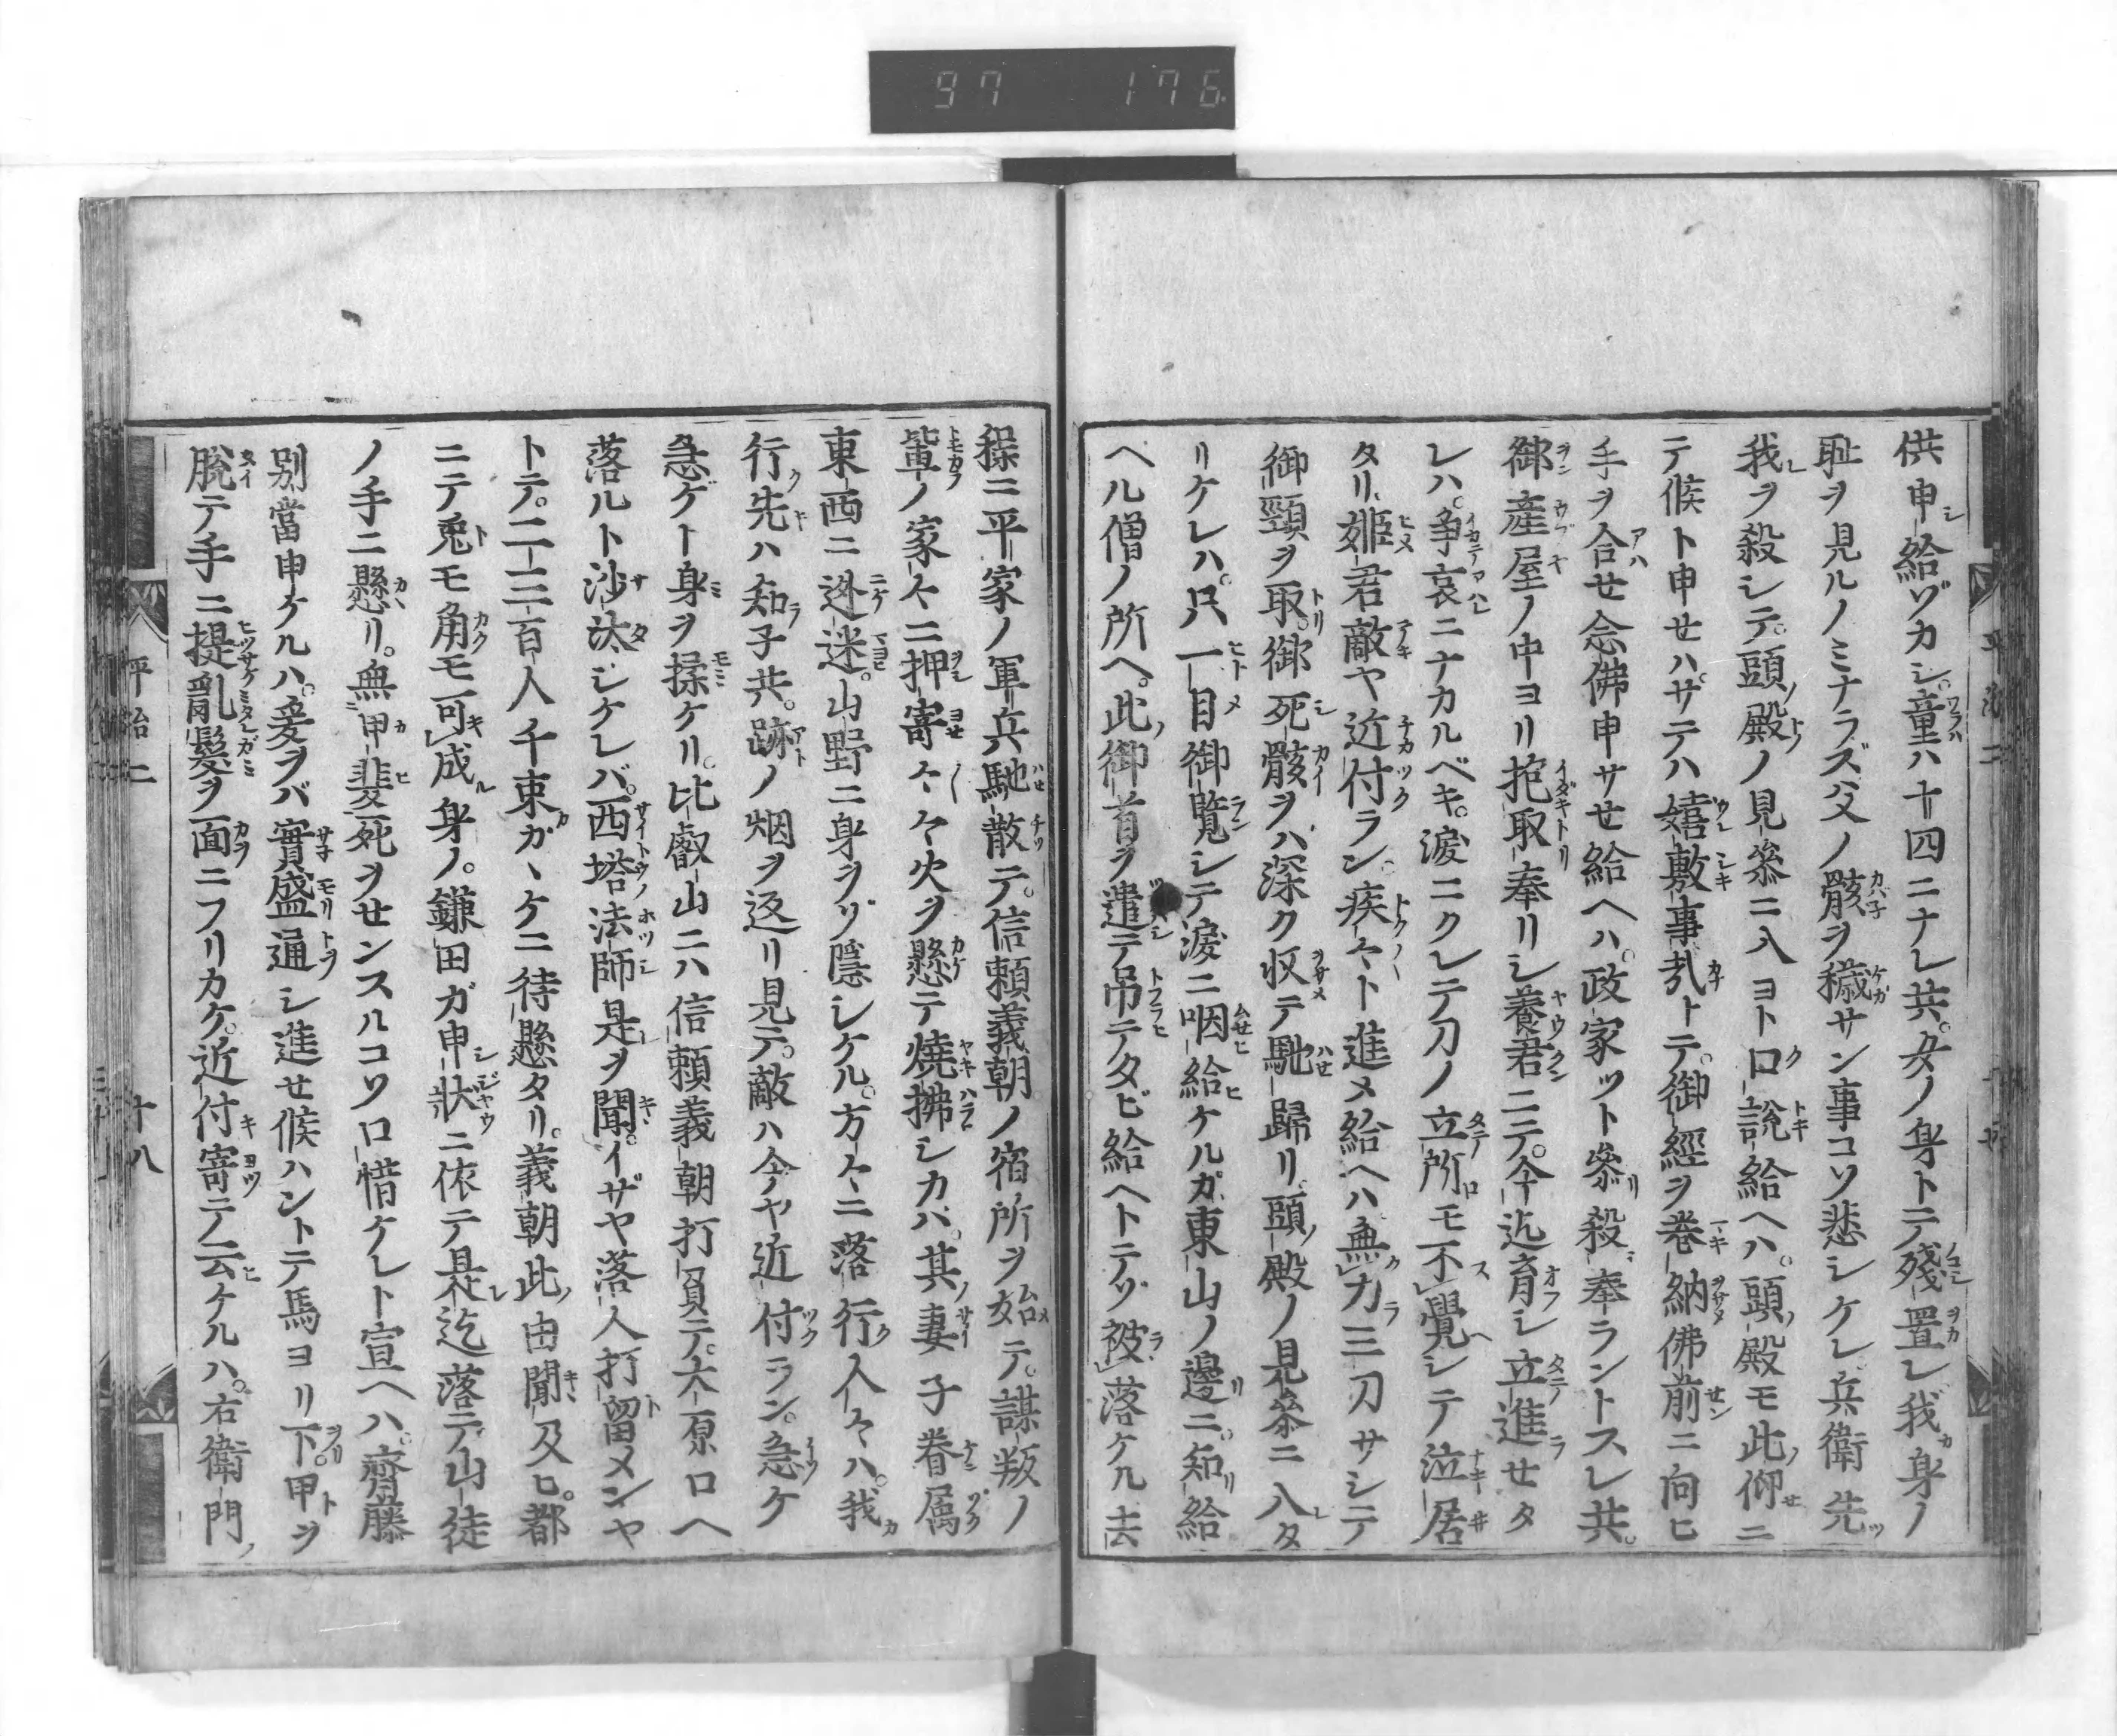 97 176
供申給ゾカシ。童ハ十四ニナレ共。女ノ身トテ殘置レ我身ノ
恥ヲ見ルノミナラズ父ノ骸ヲ穢サン事コソ悲シケレ。兵衛先
我ヲ殺シテ。頭殿ノ見參ニ入ヨト口說給ヘハ。頭殿モ此仰ニ
テ候ト申せハ。サテハ嬉敷事哉トテ。御經ヲ巻納佛前ニ向ヒ
手ヲ合せ念佛申サせ給ヘハ。政家ツト參殺奉ラントスレ共。
御產屋ノ中ヨリ抱取奉リシ養君ニテ。今迄育シ立進せタ
レハ。爭哀ニナカルベキ。淚ニクレテ刀ノ立所モ不覺シテ泣居
タリ。姬君敵ヤ近付ラン。疾々ト進メ給ヘハ無力三刀サシテ
御頸ヲ取。御死骸ヲハ深ク収テ馳歸リ。頭殿ノ見參ニ入タ
リケレハ。只一目御覽シテ淚ニ咽給ケルガ。東山ノ邊ニ。知給
ヘル僧ノ所ヘ。此御首ヲ遣テ吊テタビ給ヘトテゾ被落ケル去
程ニ平家ノ軍兵馳散テ。信賴義朝ノ宿所ヲ始テ。謀叛ノ
輩ノ家々ニ押寄々々火ヲ懸テ燒拂シカバ。其妻子眷属
東西ニ迯迷。山野ニ身ヲゾ隱シケル。方々ニ落行人々ハ。我
行先ハ知子共。跡ノ烟ヲ返リ見テ。敵ハ今ヤ近付ラン。急ケ
急ゲト身ヲ揉ケリ。比叡山ニハ信賴義朝打負テ。大原口ヘ
落ルト沙汰シケレバ。西塔法師是ヲ聞。イザヤ落人打留メンヤ
トテ。二三百人千束ガヽケニ待懸タリ。義朝此由聞及ヒ。都
ニテ兎モ角モ可成身ノ。鎌田ガ申狀ニ依テ是迄落テ。山徒
ノ手ニ懸リ。無甲斐死ヲせンスルコソ口惜ケレト宣ヘハ。齊藤
別當申ケルハ。爰ヲバ實盛通シ進せ候ハントテ馬ヨリ下。甲ヲ
脫テ手ニ提。亂髮ヲ面ニフリカケ。近付寄テ云ケルハ。右衛門
平治二
十八